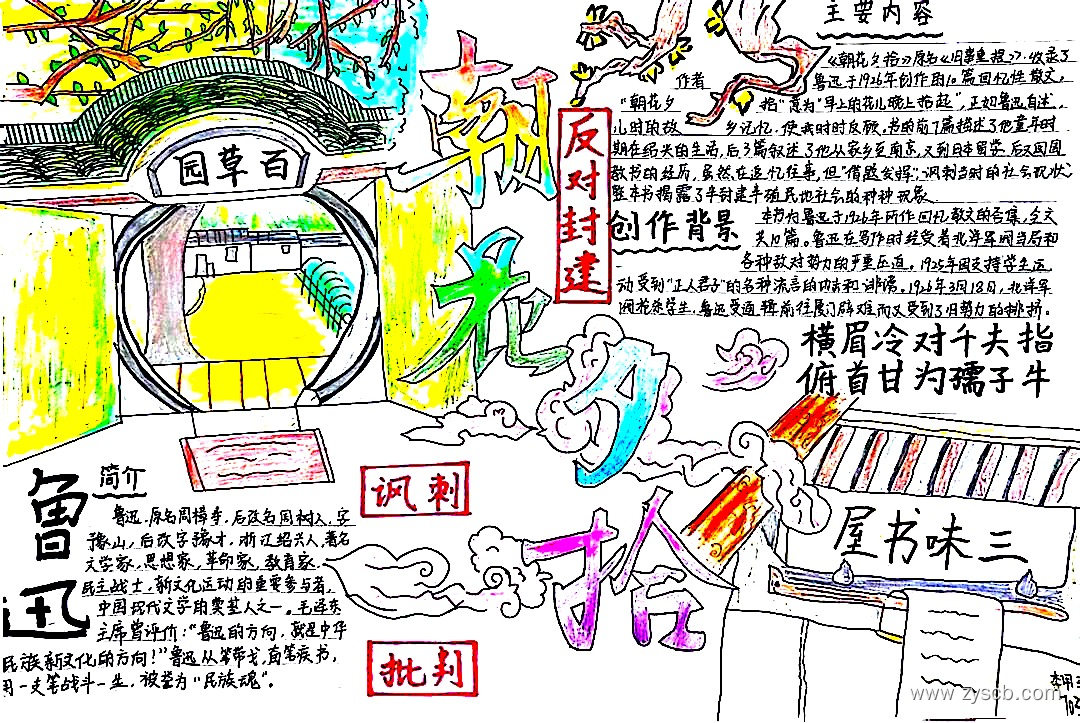 主要内容
《朝花夕拾》原名《旧事重提》，收录了
作者
鲁迅于1926年创作的10篇回忆性散文。
“朝花夕
拾”意为“早上的花儿晚上拾起”，正如鲁迅自述，
儿时的故
乡记忆，使我时时反顾。书的前7篇描述了他童年时
期在绍兴的生活，后3篇叙述了他从家乡至南京，又到日本留学，后又回国
教书的经历，虽然在追忆往事，但“借题发挥”，讽刺当时的社会现状，
整本书揭露了半封建半殖民地社会的种种现象。
创作背景
本书为鲁迅于1926年所作回忆散文的合集，全文
共10篇。鲁迅在写作时经受着北洋军阀当局和
各种敌对势力的严重压迫。1925年因支持学生运
动受到“正人君子”的各种流言的攻击和诽谤。1926年3月18日，北洋军
阀枪杀学生，鲁迅受通缉前往厦门避难而又受到了旧势力的排挤。
横眉冷对千夫指
俯首甘为孺子牛
朝花夕拾
反对封建
园草百
讽刺
批判
屋书味三
鲁迅
简介
鲁迅，原名周樟寿，后改名周树人，字
豫山，后改字豫才，浙江绍兴人，著名
文学家，思想家，革命家，教育家，
民主战士，新文化运动的重要参与者，
中国现代文学的奠基人之一。毛泽东
主席曾评价：“鲁迅的方向，就是中华
民族新文化的方向！”鲁迅从笔带戈，自笔疾书，
用一支笔战斗一生，被誉为“民族魂”。
www.zyscb.com